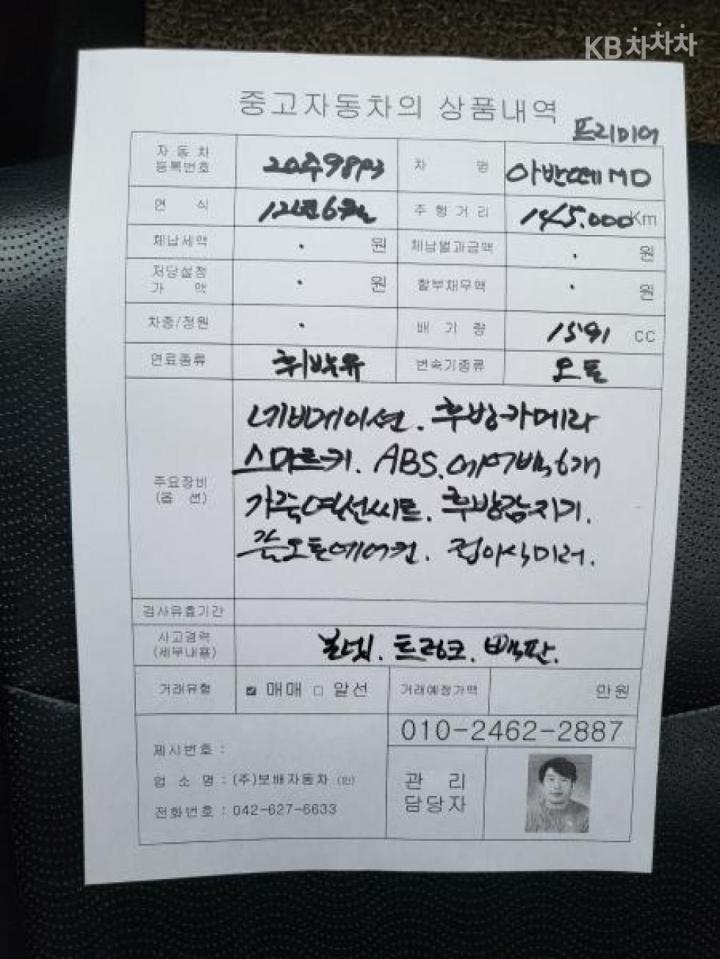 KB차차차
중고자동차의 상품내역
프리미어
자동차
등록번호
차 명 아반떼MD
연 식 12년6월 주행거리 145.000Km
체납세액 . 원 체납벌과금액 . 원
저당설정
가 액 . 원 할부채무액 . 원
차종/정원 . 배기량 1591 CC
연료종류 휘발유 변속기종류 오토
주요장비
(옵 션)
네비게이션. 후방카메라
스마트키. ABS. 에어백6개
가죽열선씨트. 후방감지기.
풀오토에어컨. 접이식미러.
검사유효기간
사고경력
(세부내용)
본넷. 트렁크. 빽판.
거래유형 ☑ 매매 □ 알선 거래예정가액 만원
010-2462-2887
제시번호 :
업 소 명 : (주)보배자동차 (인)
전화번호 : 042-627-6633
관 리
담당자